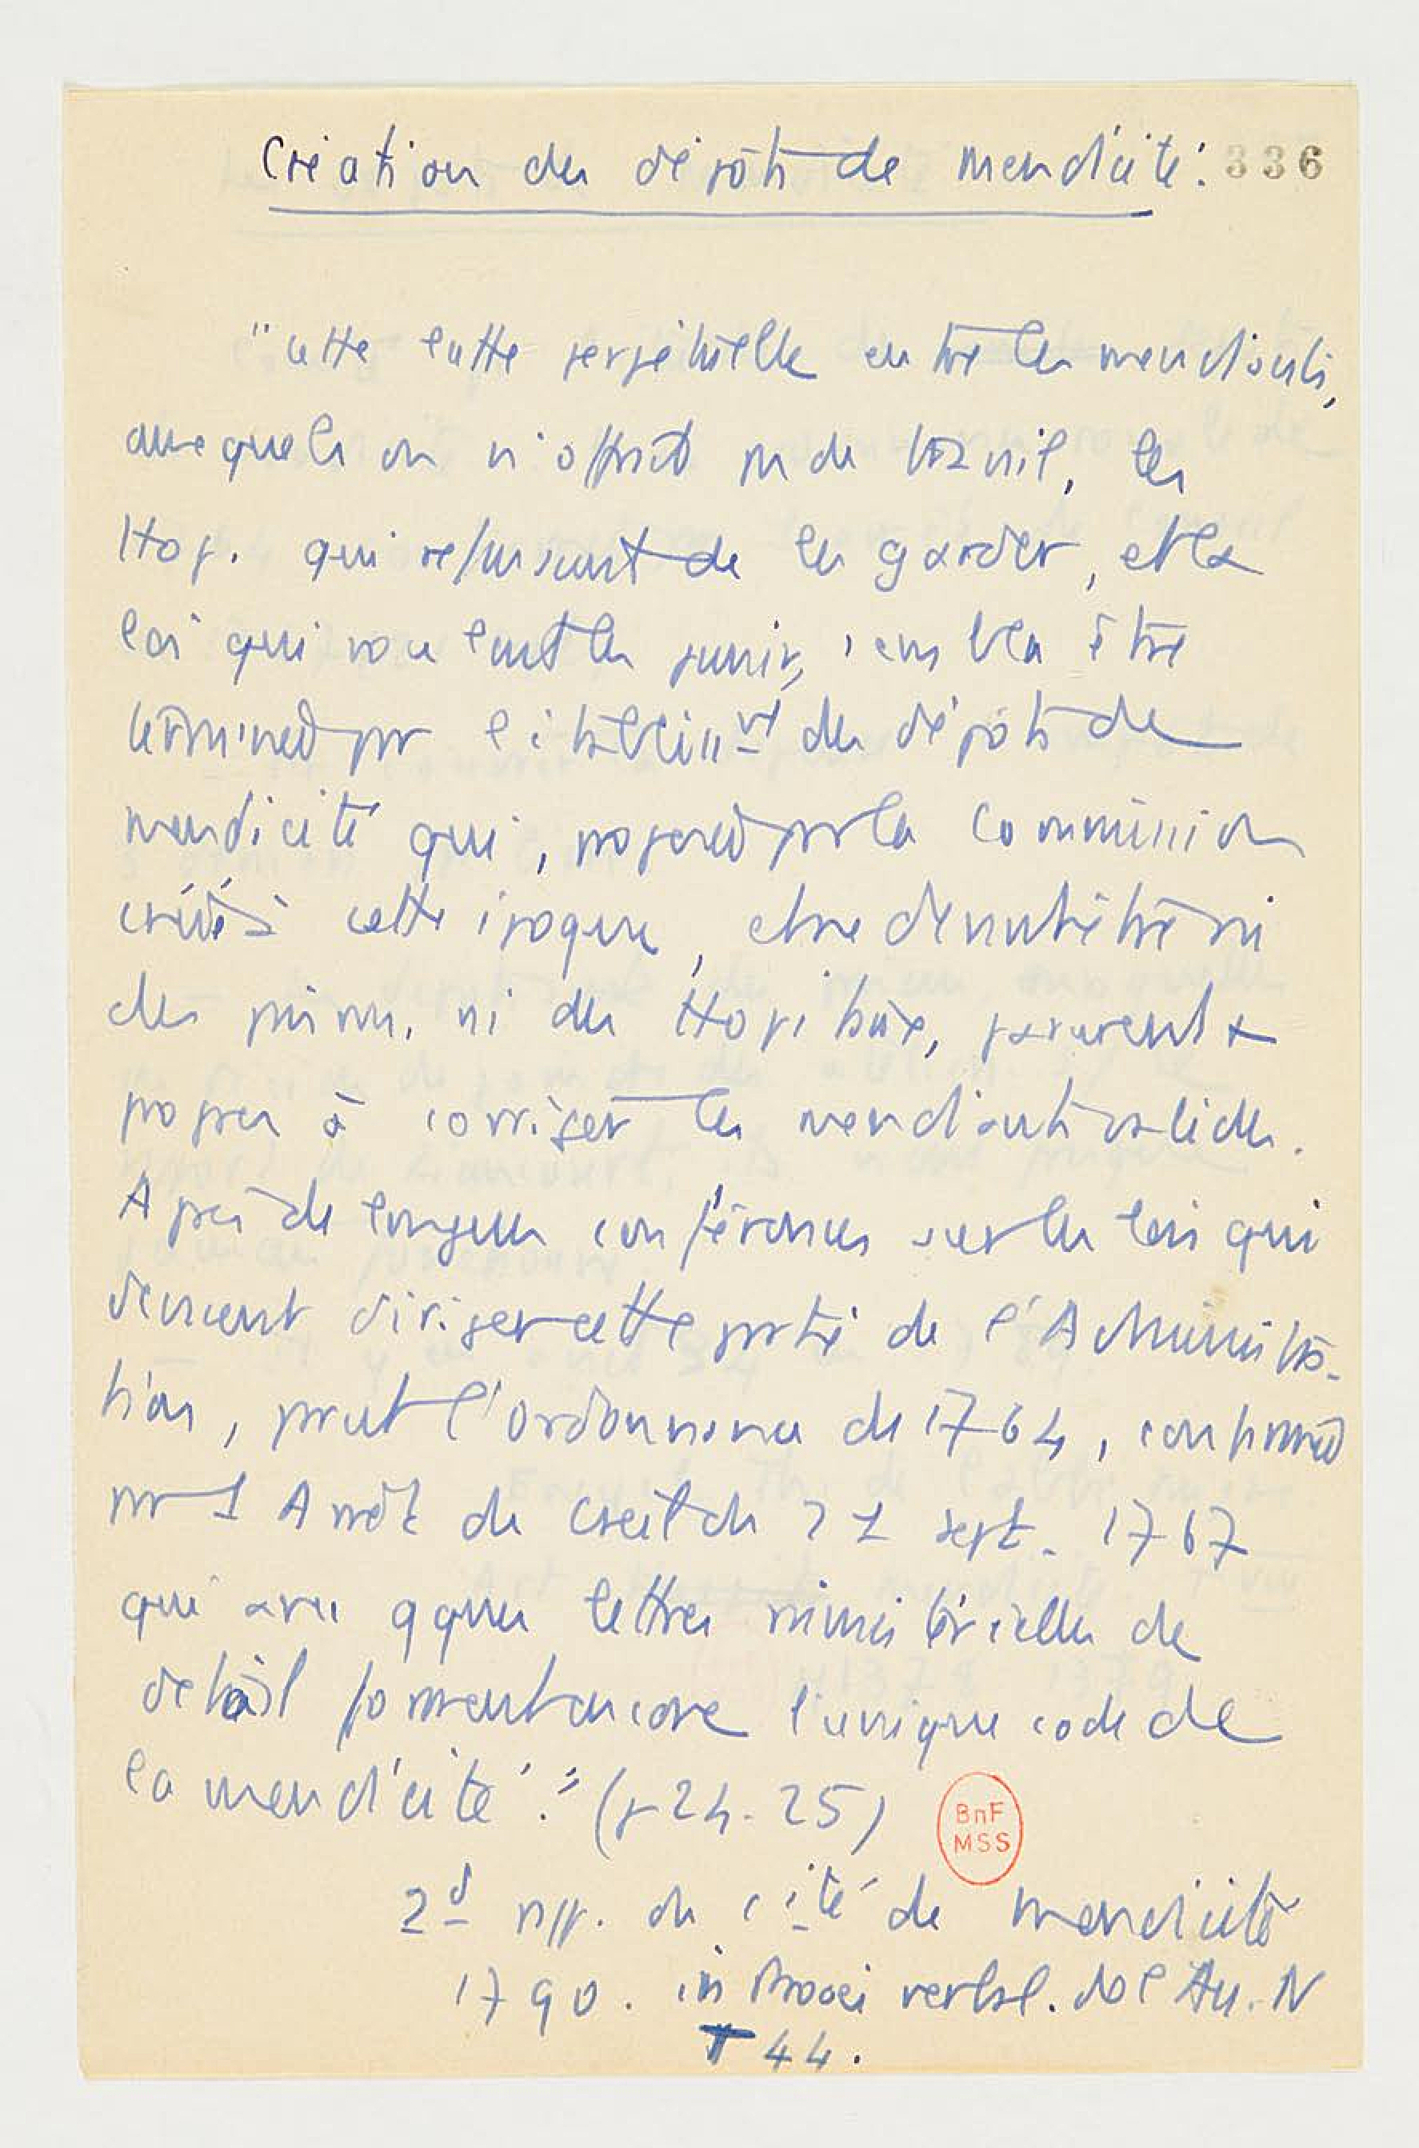 Création des dépôts de mendicité. 336
"Cette lutte perpétuelle entre les mendiants,
auxquels on n'offrait pas de travail, les
Hop. qui refusaient de les garder, et la
loi qui voulait les punir, sembla être
terminée par l'établissmt des dépôts de
mendicité qui, proposés par la commission
créée à cette époque, et ne devant être ni
des prisons, ni des Hopitaux, parurent
propres à corriger les mendiants valides.
Après de longues conférences sur les lois qui
devaient diriger cette partie de l'Administra-
tion, parut l'ordonnance de 1764, confirmée
par 1 Arrêt du Cseil du 21 sept. 1767
qui avec qques lettres ministérielles de
détail forment encore l'unique code de
la mendicité." (p 24-25)
BnF
MSS
2d rapp. du cité de mendicité
1790. in Procès verbal. de l'Ass. N
T 44.